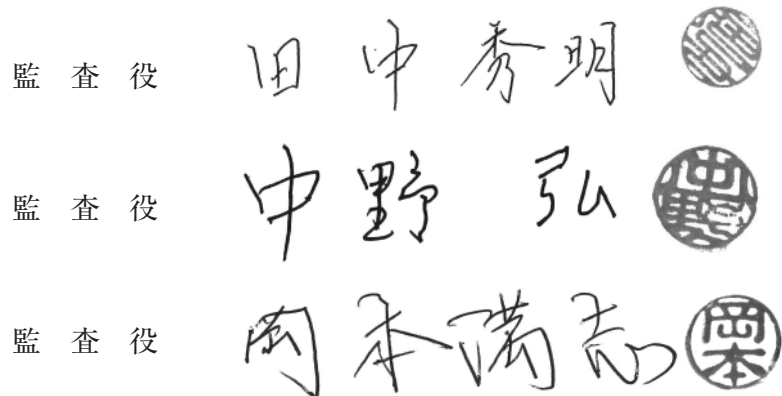 監査役 田中秀明
監査役 中野 弘 中野
監査役 岡本満志 岡本